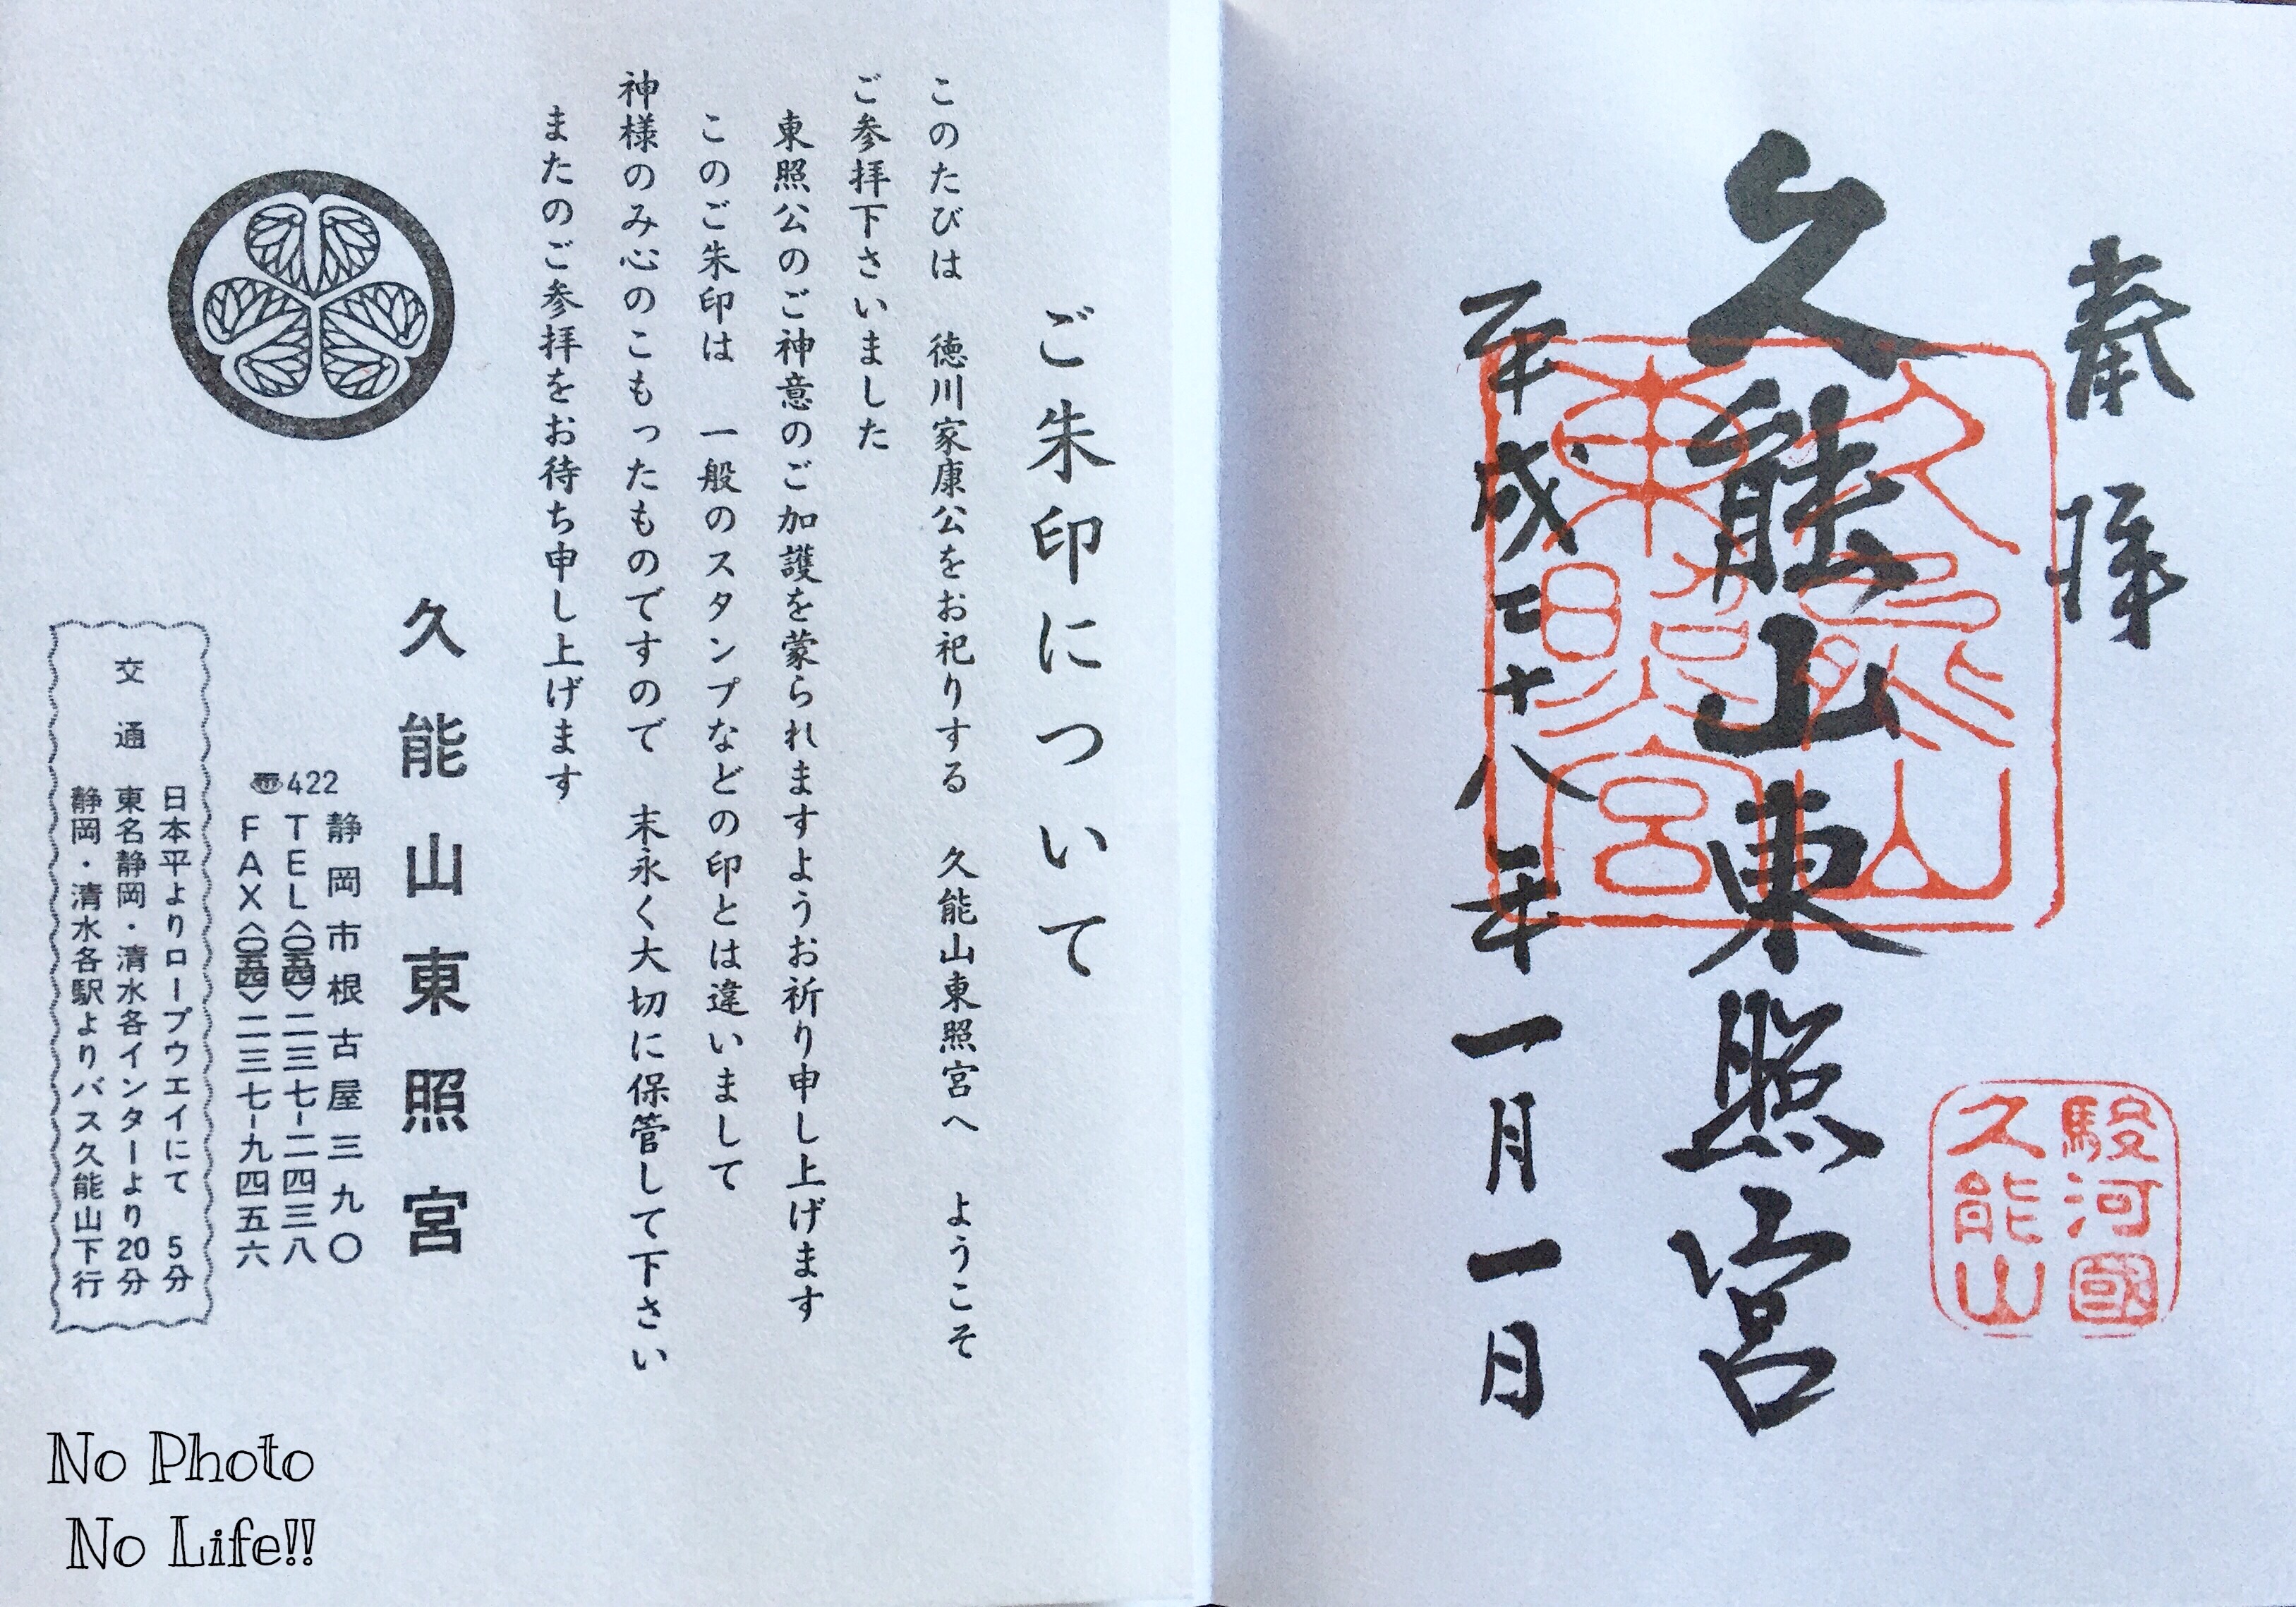 奉拝
久能山東照宮
平成二十八年一月一日
久能山
東照宮
駿河國
久能山
ご朱印について
このたびは 徳川家康公をお祀りする 久能山東照宮へ ようこそ
ご参拝下さいました
東照公のご神意のご加護を蒙られますようお祈り申し上げます
このご朱印は 一般のスタンプなどの印とは違いまして
神様のみ心のこもったものですので 末永く大切に保管して下さい
またのご参拝をお待ち申し上げます
久能山東照宮
〠422
静岡市根古屋三九〇
TEL〈〇五四〉二三七-二四三八
FAX〈〇五四〉二三七-九四五六
交通
日本平よりロープウエイにて 5分
東名静岡・清水各インターより20分
静岡・清水各駅よりバス久能山下行
No Photo
No Life!!